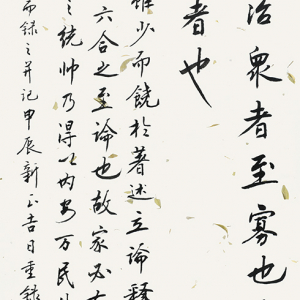 治眾者至寡也
者也
雖少而饒於著述立論釋
六合之至論也故家必有
之統帅乃得以内安万民外
而録之并記甲辰新正吉日重録